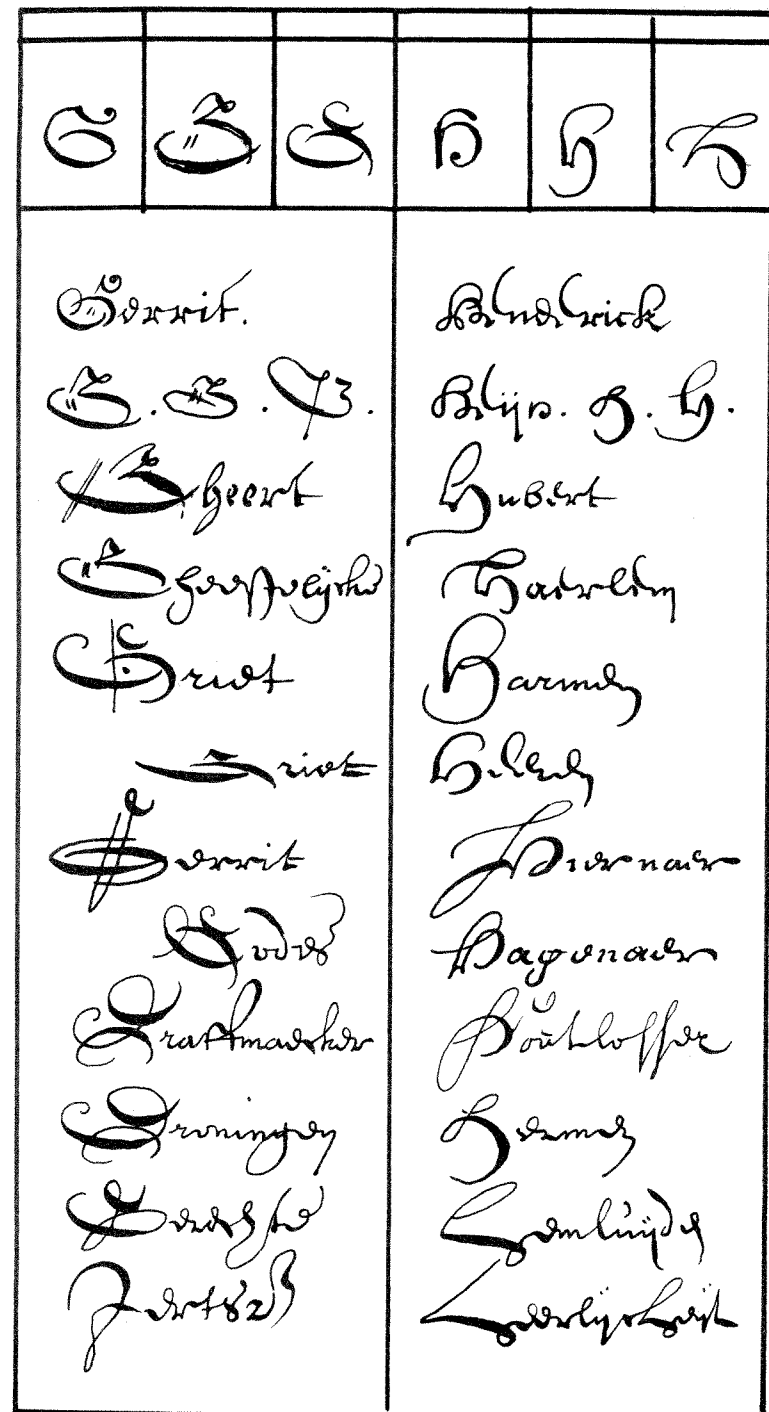 G G G H H H
Gerrit.
G. G.
Gheert
Gheestelijcke
Griet
Griet
Gerrit
Godes
Graftmaecker
Groningen
Gerechte
Henderick
Heijn. H. H.
Hubert
Haerlem
Harmen
Hillen
Hier naer
Hagenaer
Houtlosser
Hermen
Heerlijckheijt